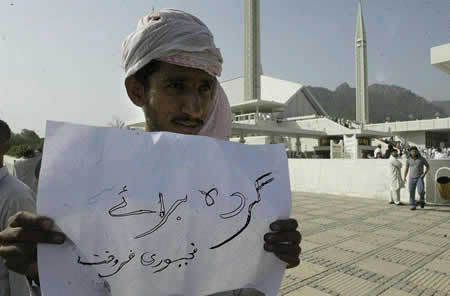 گردہ برائے
مجبوری فروخت